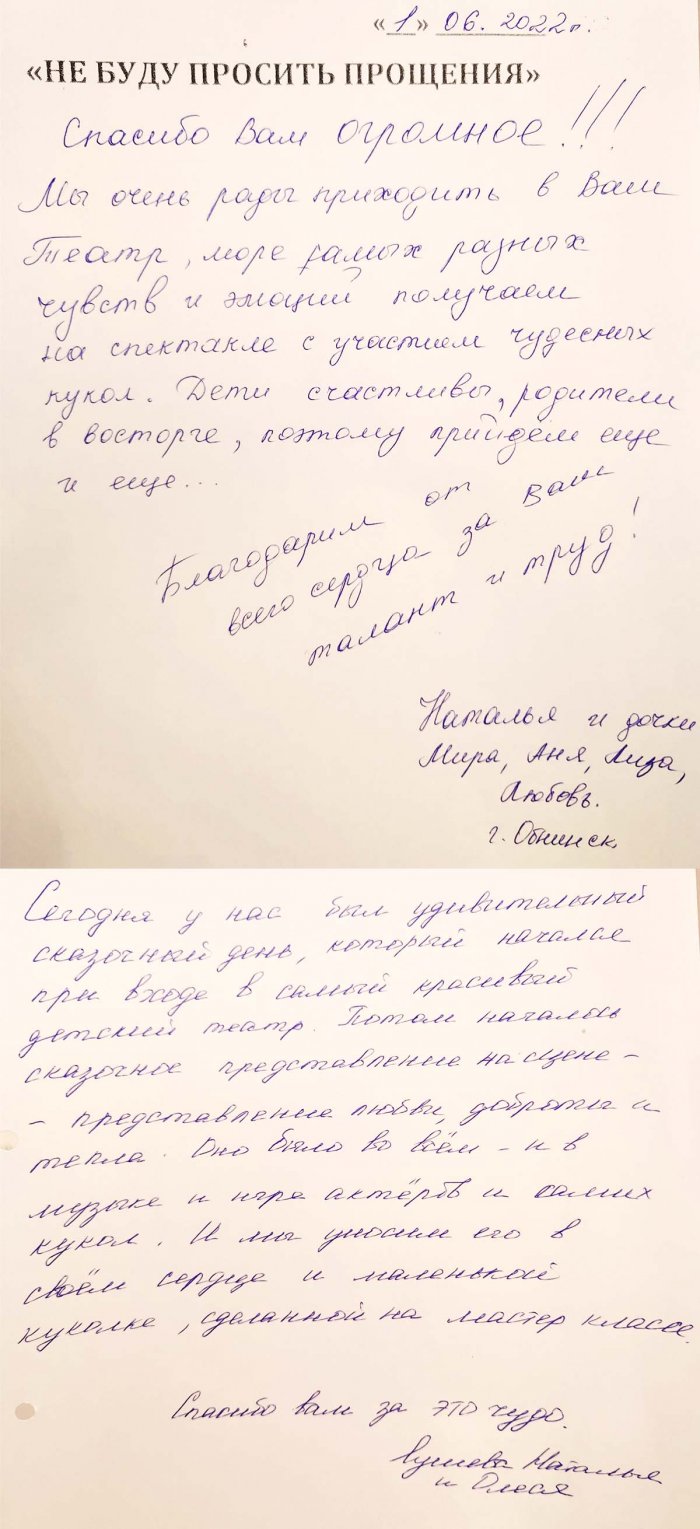 «1» 06. 2022г.
«НЕ БУДУ ПРОСИТЬ ПРОЩЕНИЯ»
Спасибо Вам огромное!!!
Мы очень рады приходить в Ваш
Театр, море самых разных
чувств и эмоций получаем
на спектакле с участием чудесных
кукол. Дети счастливы, родители
в восторге, поэтому прийдем еще
и еще...
Благодарим от
всего сердца за Ваш
талант и труд!
Наталья и дочки
Мира, Аня, Лиза,
Любовь.
г. Обнинск.
Сегодня у нас был удивительный
сказочный день, который начался
при входе в самый красивый
детский театр. Потом началось
сказочное представление на сцене -
- представление любви, доброты и
тепла. Оно было во всём - и в
музыке и игре актёров и самих
кукол. И мы уносим его в
своём сердце и маленькой
куколке, сделанной на мастер классе.
Спасибо вам за это чудо.
Наталья
и Олеся